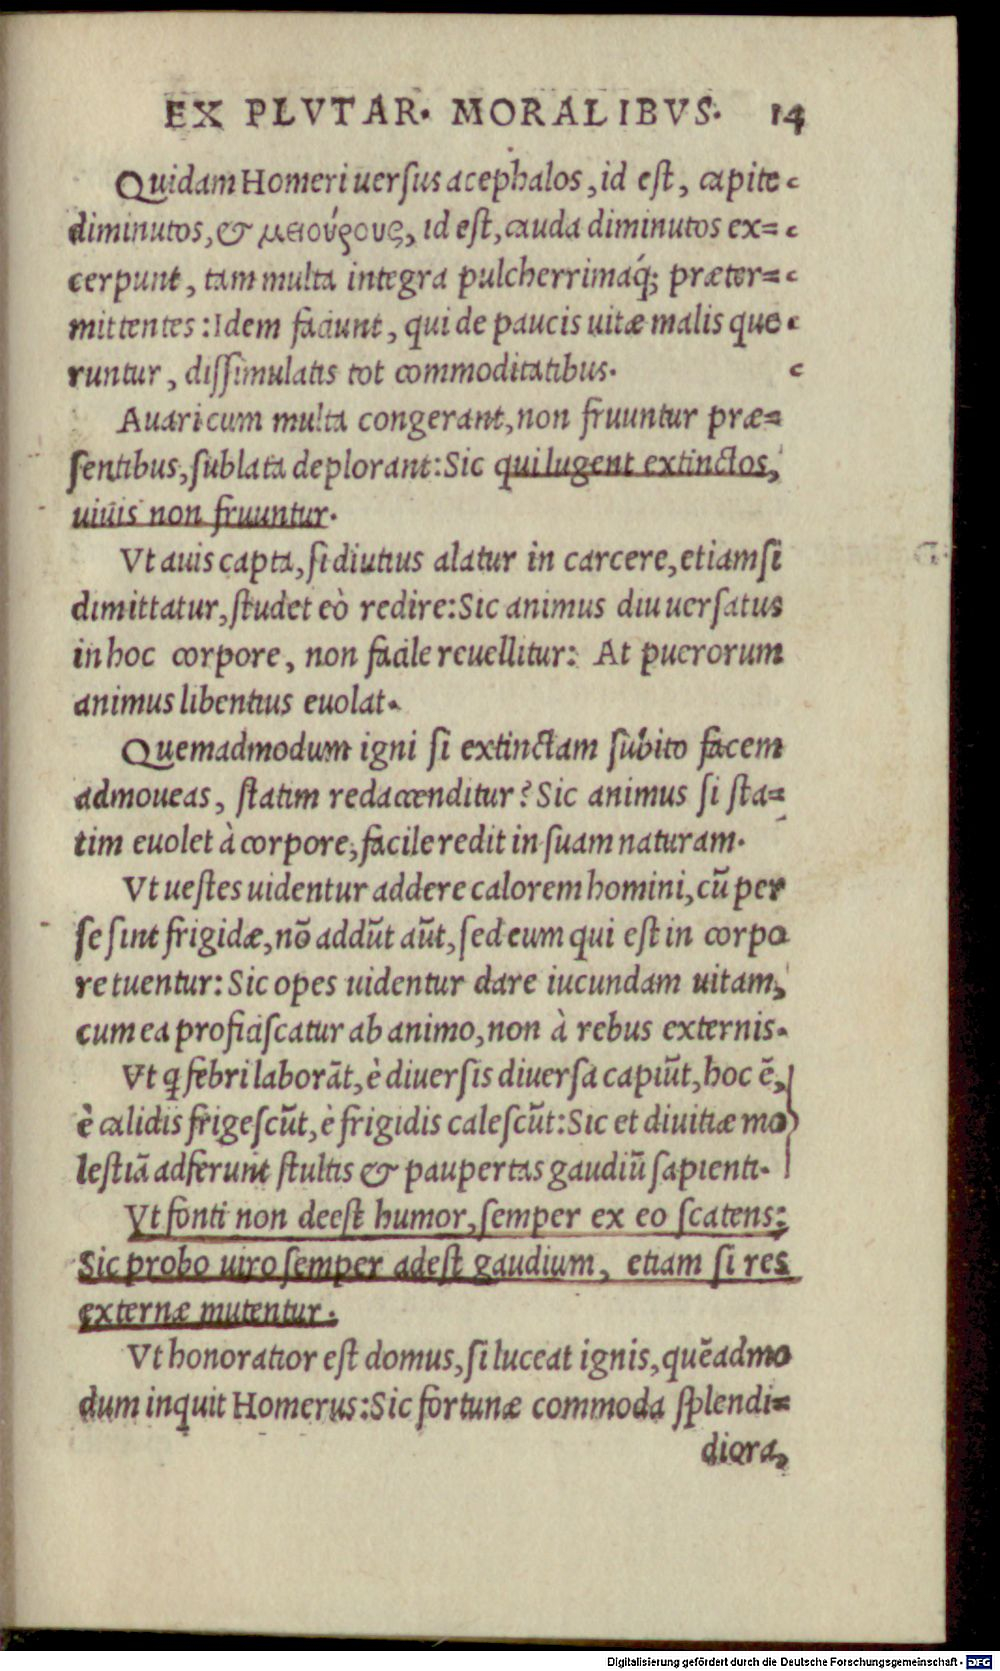 EX PLVTAR. MORALIBVS. 14
Quidam Homeri uersus acephalos, id est, capite
diminutos, & μειούρους, id est, cauda diminutos ex=
cerpunt, tam multa integra pulcherrimaq́; præter=
mittentes: Idem faciunt, qui de paucis uitæ malis que
runtur, dissimulatis tot commoditatibus.
Auari cum multa congerant, non fruuntur præ=
sentibus, sublata deplorant: Sic qui lugent extinctos,
uiuis non fruuntur.
Vt auis capta, si diutius alatur in carcere, etiamsi
dimittatur, studet eò redire: Sic animus diu uersatus
in hoc corpore, non facile reuellitur: At puerorum
animus libentius euolat.
Quemadmodum igni si extinctam subito facem
admoueas, statim redaccenditur? Sic animus si sta=
tim euolet à corpore, facile redit in suam naturam.
Vt uestes uidentur addere calorem homini, cũ per
se sint frigidæ, nõ addũt aũt, sed eum qui est in corpo
re tuentur: Sic opes uidentur dare iucundam uitam,
cum ea proficiscatur ab animo, non à rebus externis.
Vt q febri laborãt, è diuersis diuersa capiũt, hoc ẽ,
è calidis frigescũt, è frigidis calescũt: Sic et diuitiæ mo
lestiã adferunt stultis & paupertas gaudiũ sapienti.
Vt fonti non deest humor, semper ex eo scatens:
Sic probo uiro semper adest gaudium, etiam si res
externæ mutentur.
Vt honoratior est domus, si luceat ignis, quẽadmo
dum inquit Homerus: Sic fortunæ commoda splendi=
diora,
Digitalisierung gefördert durch die Deutsche Forschungsgemeinschaft - DFG